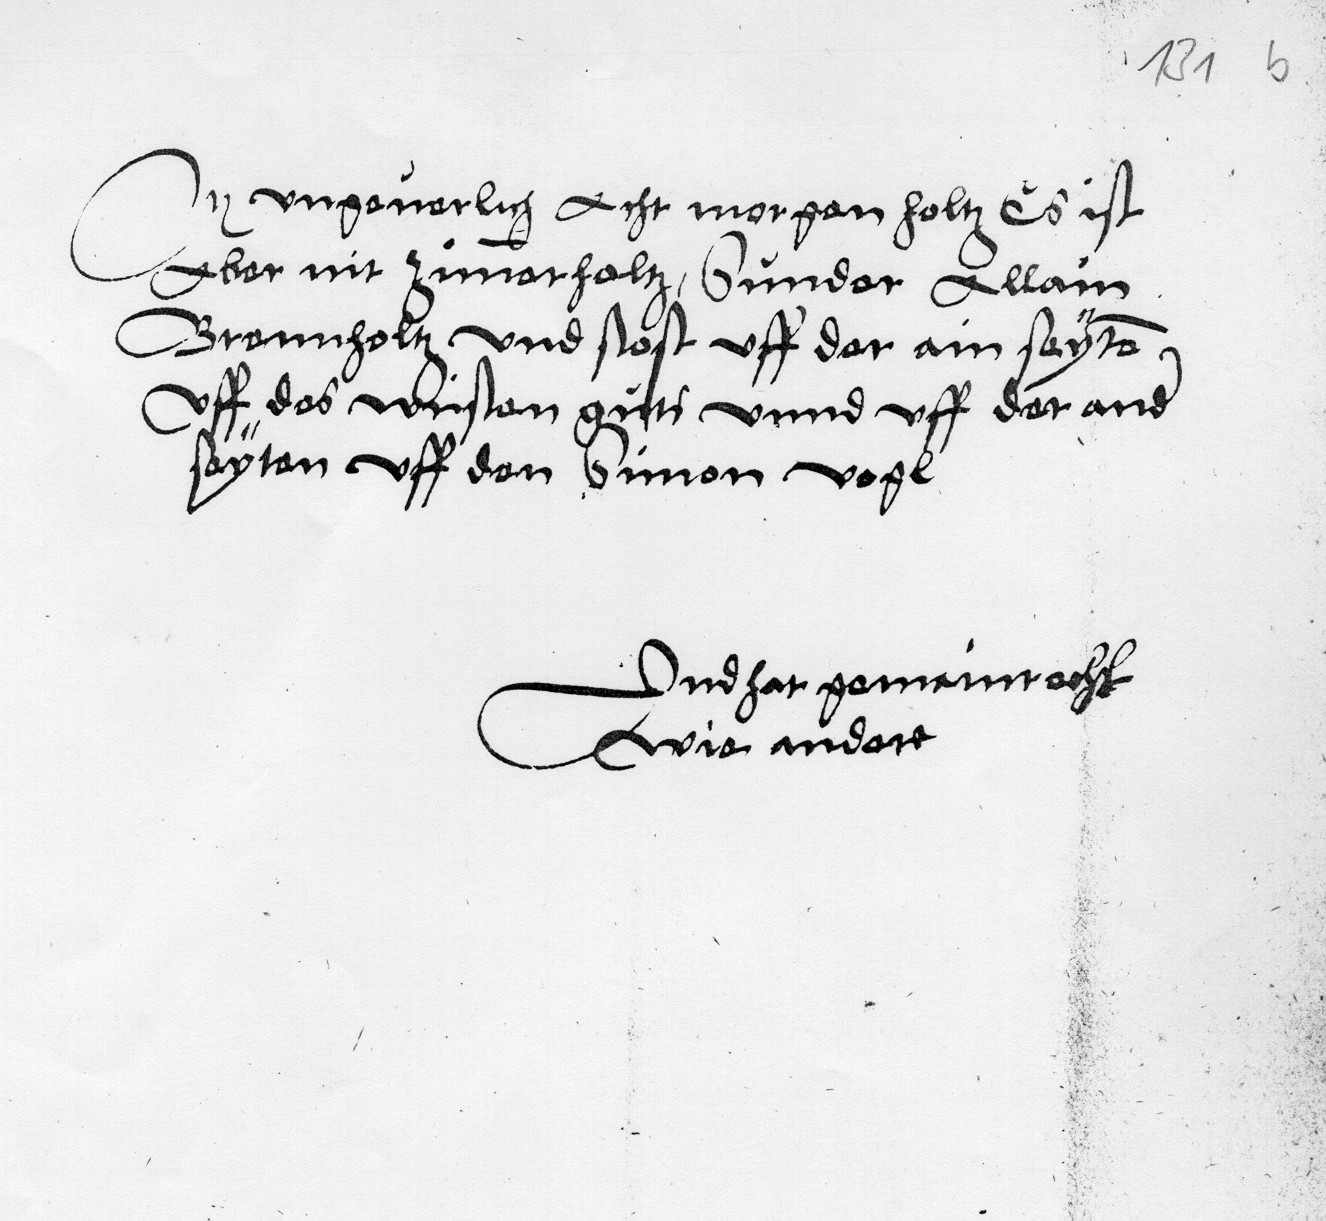 131 b
Jt ungeuerlich Acht morgen holtz Es ist
Aber nit zim̄erholtz, Sunder Allain
Brennholtz vnd stost vff der ain seÿtē
vff des wŭsten gŭti vnnd vff der and
seÿten vff den Simon vogl
Vnd hat gemein recht
wie andere